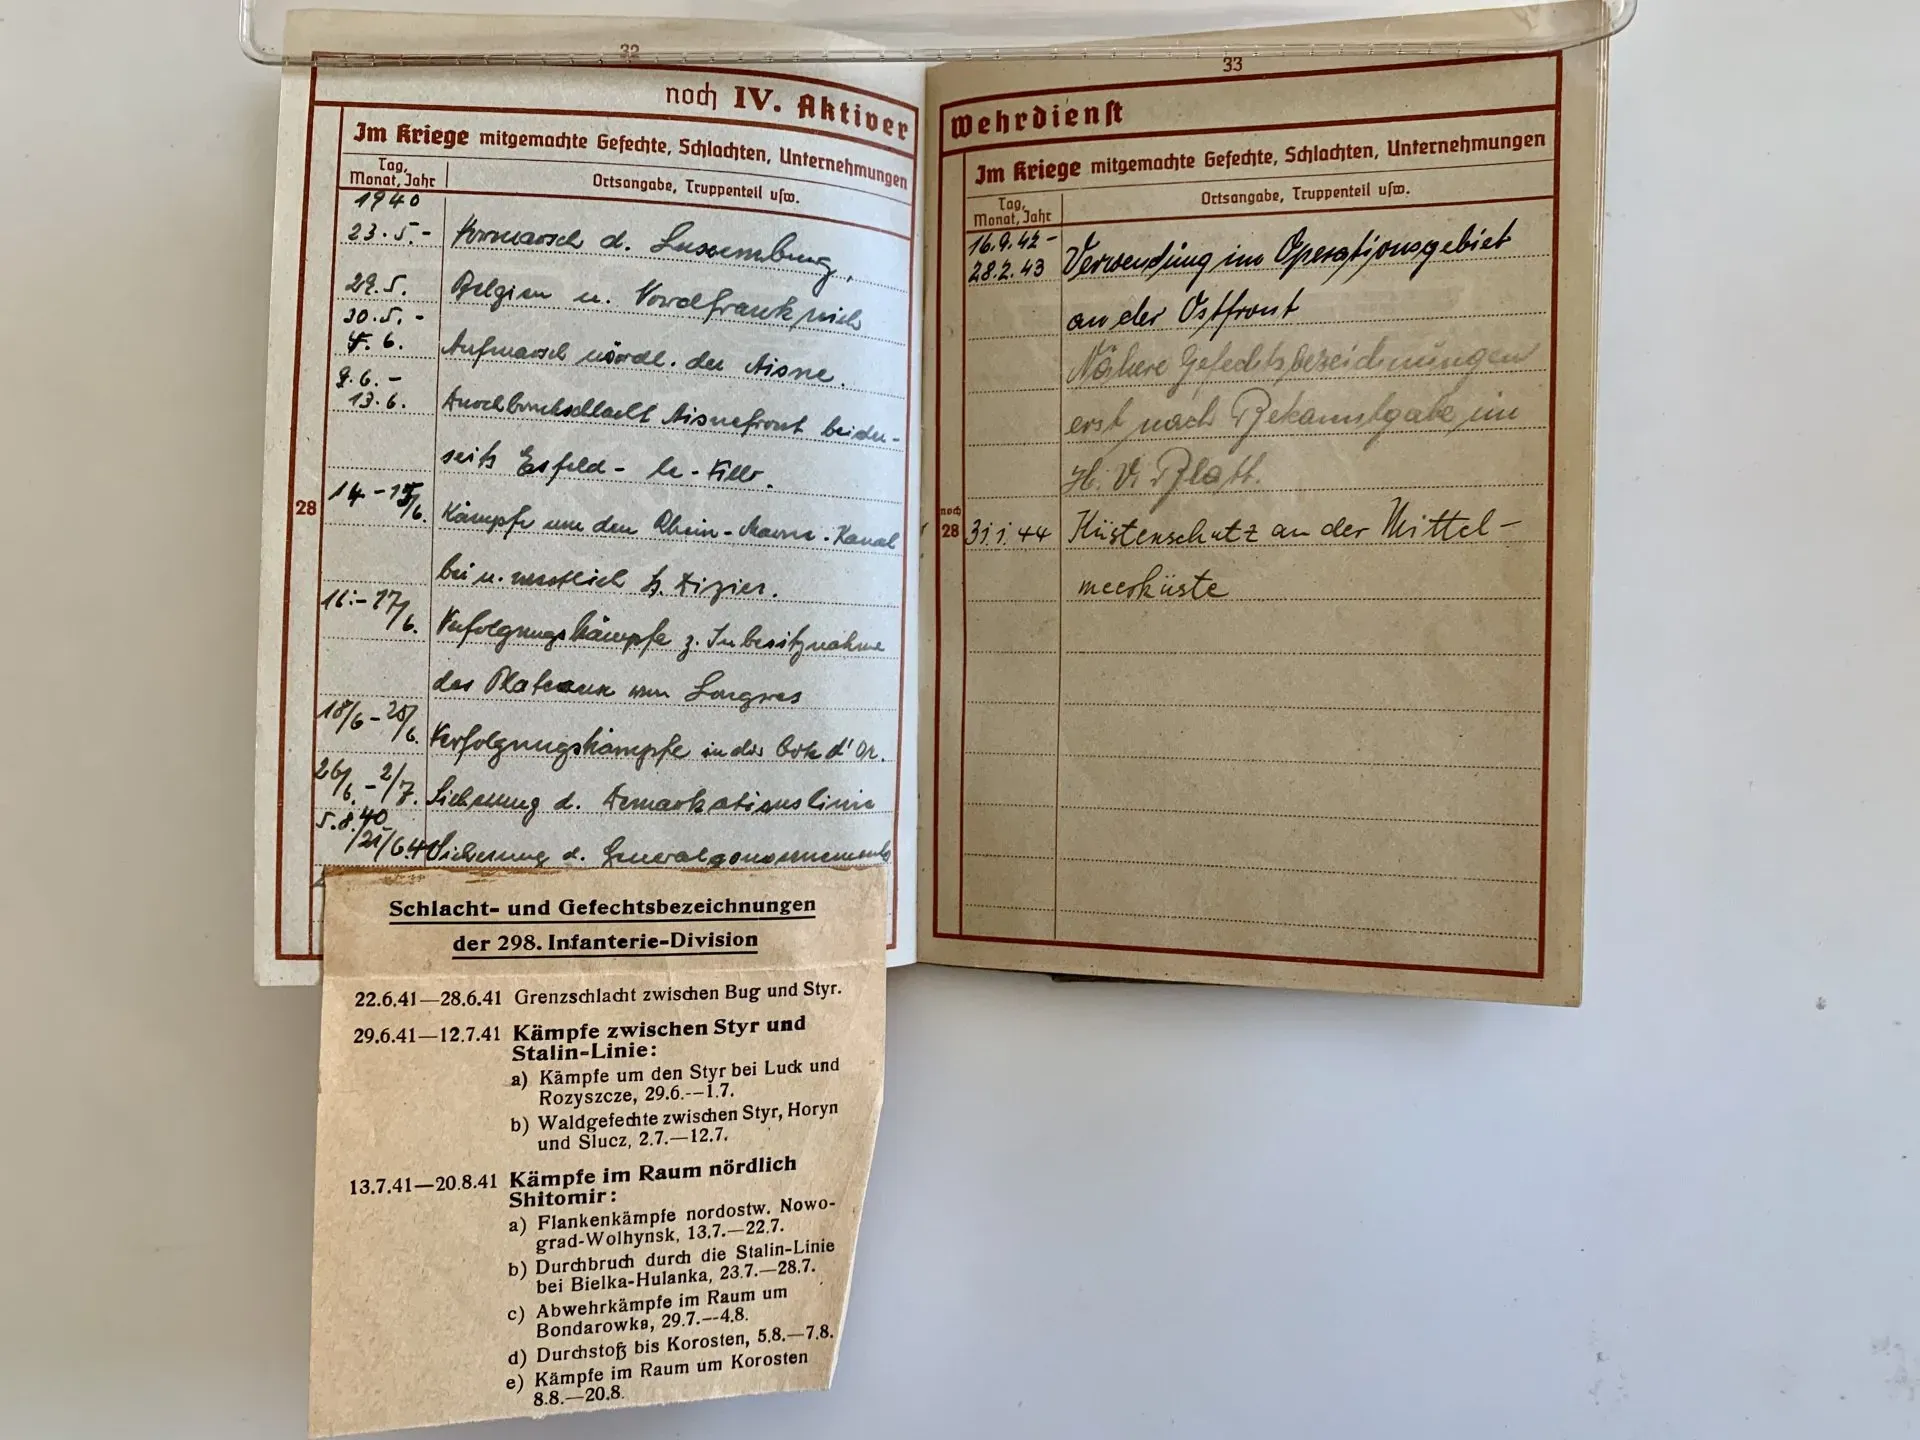 32
noch IV. Aktiver
Im Kriege mitgemachte Gefechte, Schlachten, Unternehmungen
Tag, Monat, Jahr
Ortsangabe, Truppenteil usw.
1940
23.5.-
Vormarsch d. Luxemburg,
29.5.
Belgien u. Nordfrankreich
30.5.-
4.6.
Aufmarsch nördl. der Aisne.
9.6.-
13.6.
Durchbruchschlacht Aisnefront beider-
seits
28
14.-15/6.
Kämpfe um den Rhein-Marne-Kanal
bei u. westlich St. Dizier.
16.-17/6.
Verfolgungskämpfe z. Inbesitznahme
des Plateaux von Langres
18/6-25/6.
Verfolgungskämpfe in der Cote d'Or.
26/6.-2/7.
Sicherung d. Demarkationslinie
5.8.40
Sicherung d. Generalgouvernements
Schlacht- und Gefechtsbezeichnungen
der 298. Infanterie-Division
22.6.41—28.6.41 Grenzschlacht zwischen Bug und Styr.
29.6.41—12.7.41 Kämpfe zwischen Styr und
Stalin-Linie:
a) Kämpfe um den Styr bei Luck und
Rozyszcze, 29.6.--1.7.
b) Waldgefechte zwischen Styr, Horyn
und Slucz, 2.7.—12.7.
13.7.41—20.8.41 Kämpfe im Raum nördlich
Shitomir:
a) Flankenkämpfe nordostw. Nowo-
grad-Wolhynsk, 13.7.—22.7.
b) Durchbruch durch die Stalin-Linie
bei Bielka-Hulanka, 23.7.—28.7.
c) Abwehrkämpfe im Raum um
Bondarowka, 29.7.--4.8.
d) Durchstoß bis Korosten, 5.8.—7.8.
e) Kämpfe im Raum um Korosten
8.8.—20.8.
33
Wehrdienst
Im Kriege mitgemachte Gefechte, Schlachten, Unternehmungen
Tag, Monat, Jahr
Ortsangabe, Truppenteil usw.
16.9.42-
28.2.43
Verwendung im Operationsgebiet
an der Ostfront
Nähere Gefechtsbezeichnungen
erst nach Bekanntgabe im
H. V. Blatt.
noch
28
31.1.44
Küstenschutz an der Mittel-
meerküste